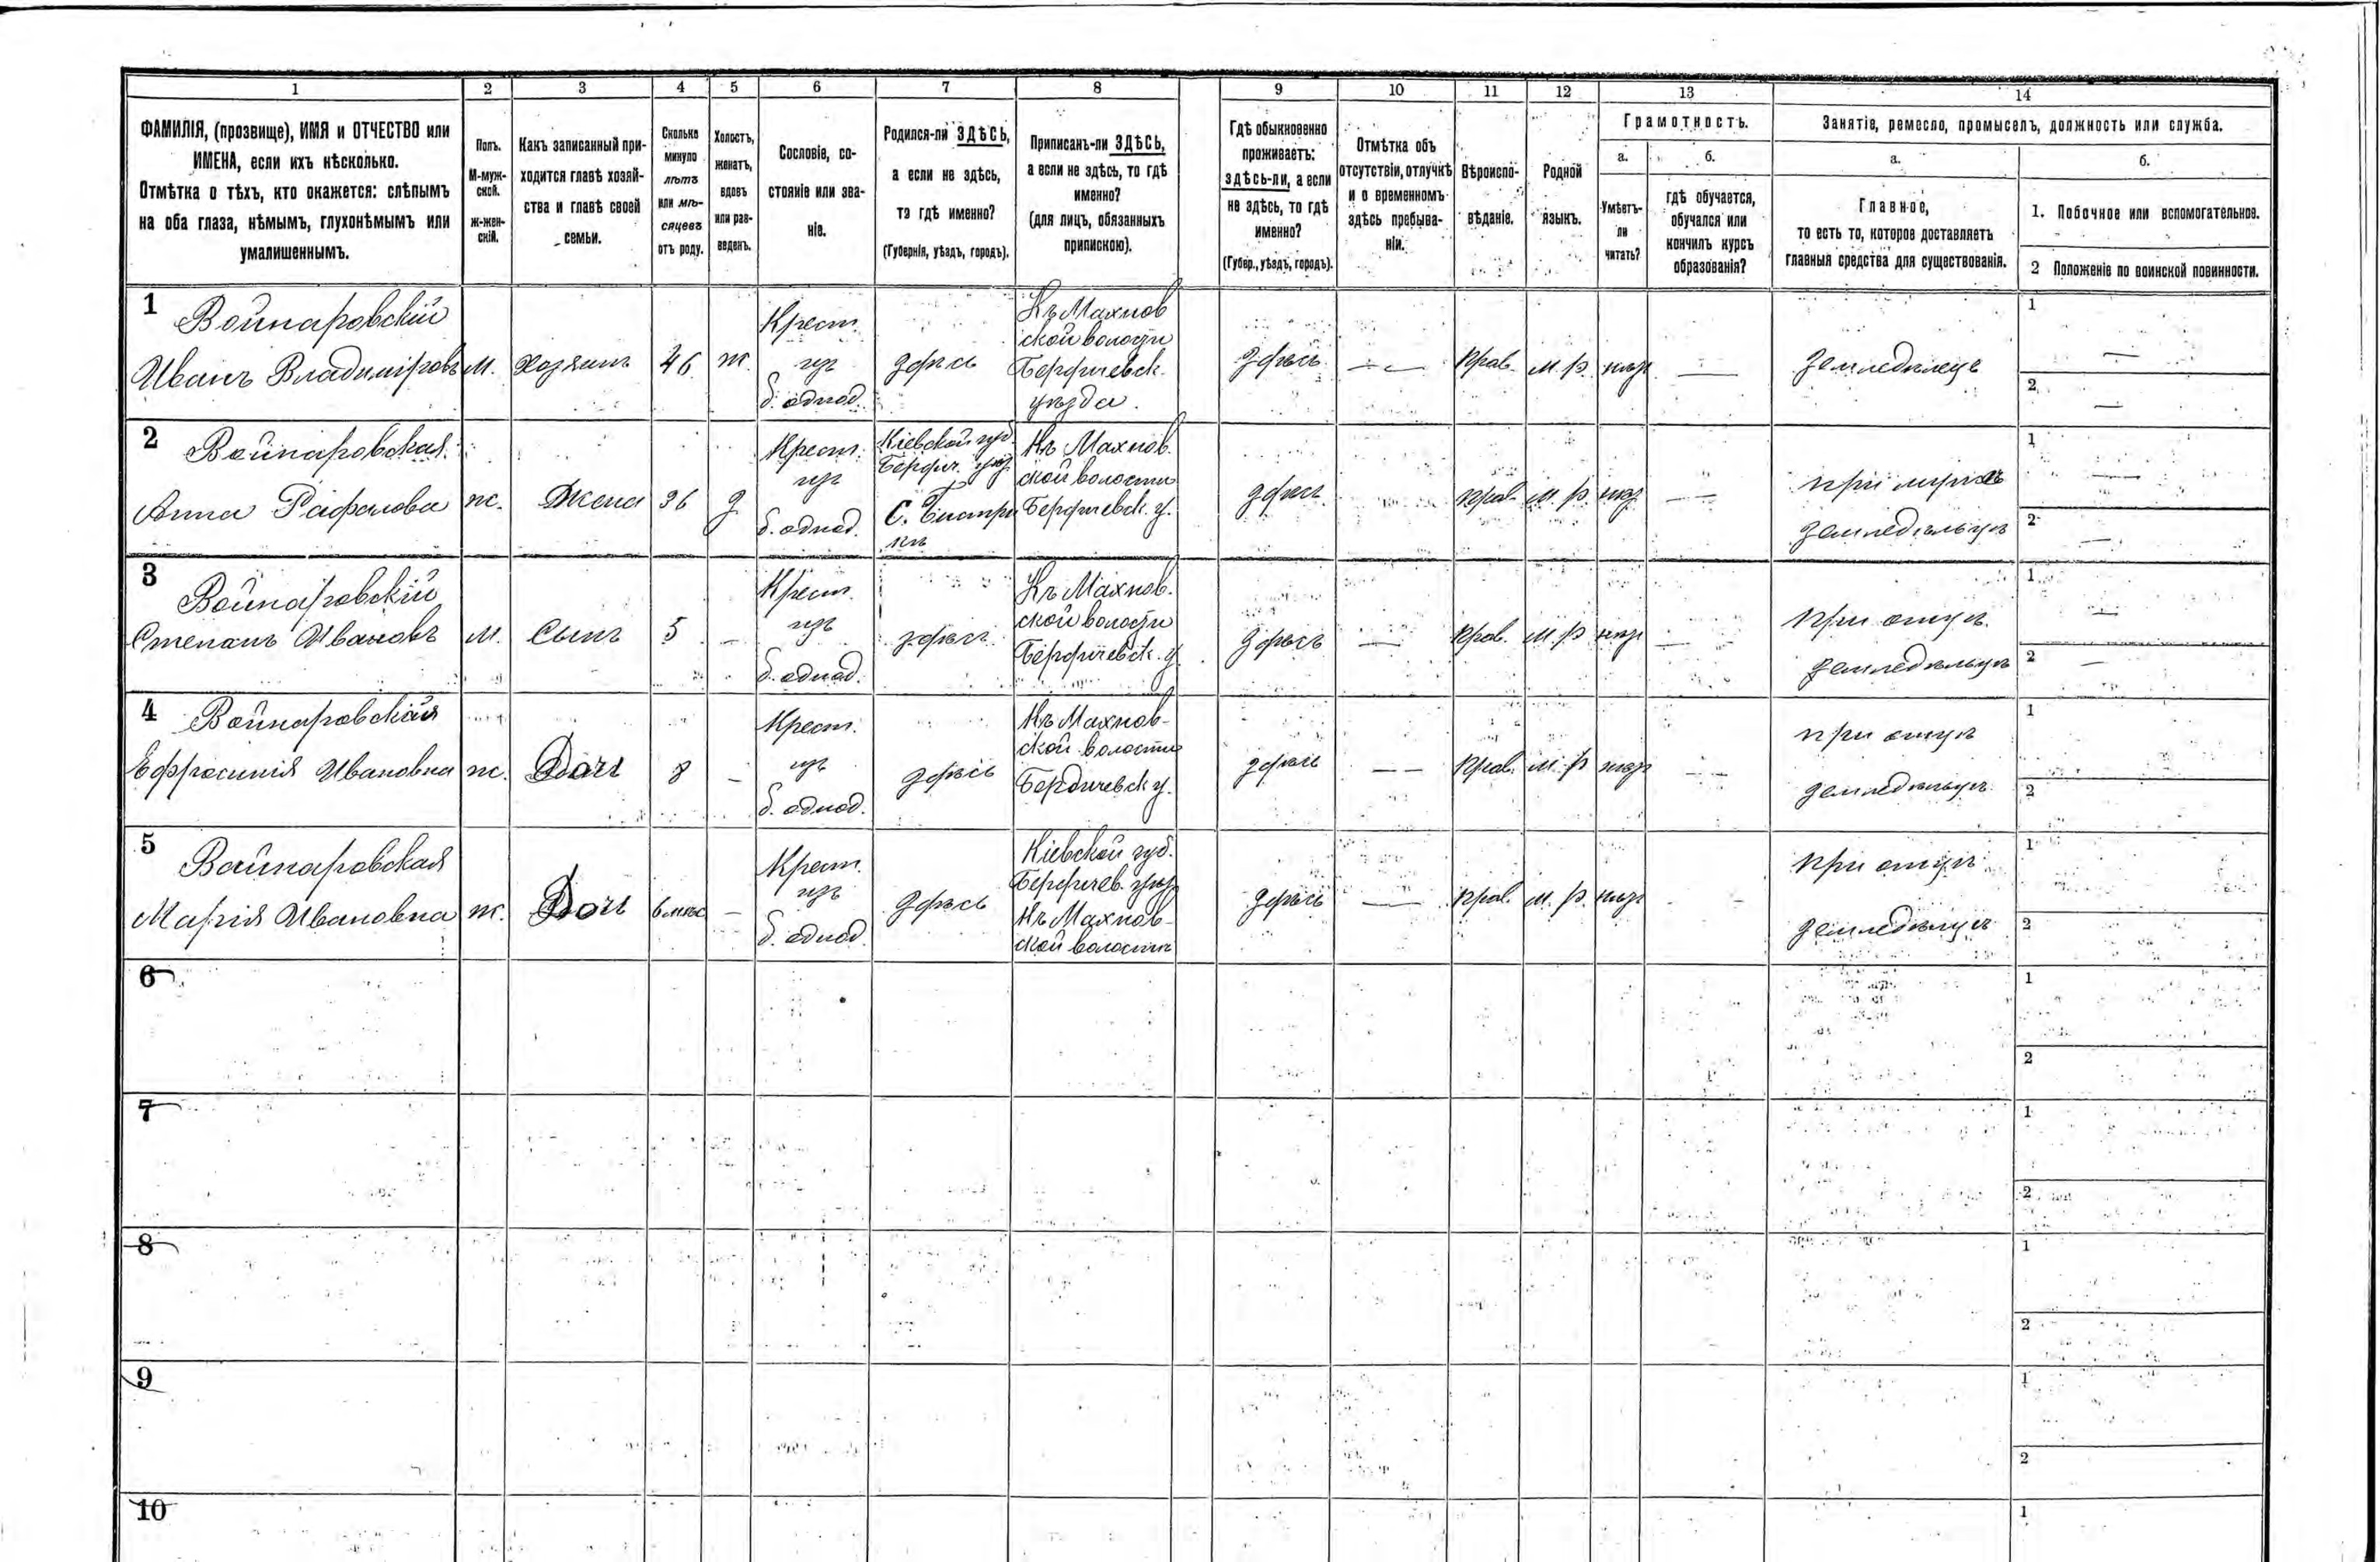 1 2 3 4 5 6 7 8 9 10 11 12 13 14
ФАМИЛІЯ, (прозвище), ИМЯ и ОТЧЕСТВО или
ИМЕНА, если ихъ нѣсколько.
Отмѣтка о тѣхъ, кто окажется: слѣпымъ
на оба глаза, нѣмымъ, глухонѣмымъ или
умалишеннымъ.
Полъ.
М-муж-
ской.
ж-жен-
скій.
Какъ записанный при-
ходится главѣ хозяй-
ства и главѣ своей
семьи.
Сколько
минуло
лѣтъ
или мѣ-
сяцевъ
отъ роду.
Холостъ,
женатъ,
вдовъ
или раз-
веденъ.
Сословіе, со-
стояніе или зва-
ніе.
Родился-ли ЗДѢСЬ,
а если не здѣсь,
то гдѣ именно?
(Губернія, уѣздъ, городъ).
Приписанъ-ли ЗДѢСЬ,
а если не здѣсь, то гдѣ
именно?
(для лицъ, обязанныхъ
припискою).
Гдѣ обыкновенно
проживаетъ:
здѣсь-ли, а если
не здѣсь, то гдѣ
именно?
(Губер., уѣздъ, городъ).
Отмѣтка объ
отсутствіи, отлучкѣ
и о временномъ
здѣсь пребыва-
ніи.
Вѣроиспо-
вѣданіе.
Родной
языкъ.
Грамотность.
а.
Умѣетъ-
ли
читать?
б.
гдѣ обучается,
обучался или
кончилъ курсъ
образованія?
Занятіе, ремесло, промыселъ, должность или служба.
а.
Главное,
то есть то, которое доставляетъ
главныя средства для существованія.
б.
1. Побочное или вспомогательное.
2 Положеніе по воинской повинности.
1 Войнаровскій
Иванъ Владиміровъ
М.
хозяинъ
46
ж.
Крест.
изъ
б. однод.
здѣсь
Къ Махнов
ской волости
Бердичевск.
уѣзда.
здѣсь
—
Прав.
м. р.
нѣт
—
земледѣлецъ
1 —
2 —
2 Войнаровская
Анна Рафалова
ж.
Жена
36
з
Крест.
изъ
б. однод.
Кіевской губ.
Бердич. уѣз.
Къ Махнов
ской волости
Бердичевск. у.
здѣсь
Прав.
м. р.
нѣт
—
при мужѣ
земледѣльцѣ
1 —
2 —
3 Войнаровскій
Степанъ Ивановъ
М.
Сынъ
5
—
Крест.
изъ
б. однод.
здѣсь
Къ Махнов.
ской волости
Бердичевск. у
здѣсь
—
Прав.
м. р
нѣт
—
при отцѣ
земледѣльцѣ
1 —
2 —
4 Войнаровская
Ефросинія Ивановна
ж.
Дочь
8
—
Крест.
изъ
б. однод.
здѣсь
Къ Махнов-
ской волости
Бердичевск у.
здѣсь
— —
Прав.
м. р
нѣт
—
при отцѣ
земледѣльцѣ
1
2
5 Войнаровская
Марія Ивановна
ж.
Дочь
6 мѣс
—
Крест.
изъ
б. однод.
здѣсь
Кіевской губ.
Бердичев. уѣз
Къ Махнов-
ской волости
здѣсь
—
Прав.
м. р.
нѣт
- -
при отцѣ
земледѣльцѣ
1
2
6
1
2
7
1
2
8
1
2
9
1
2
10
1